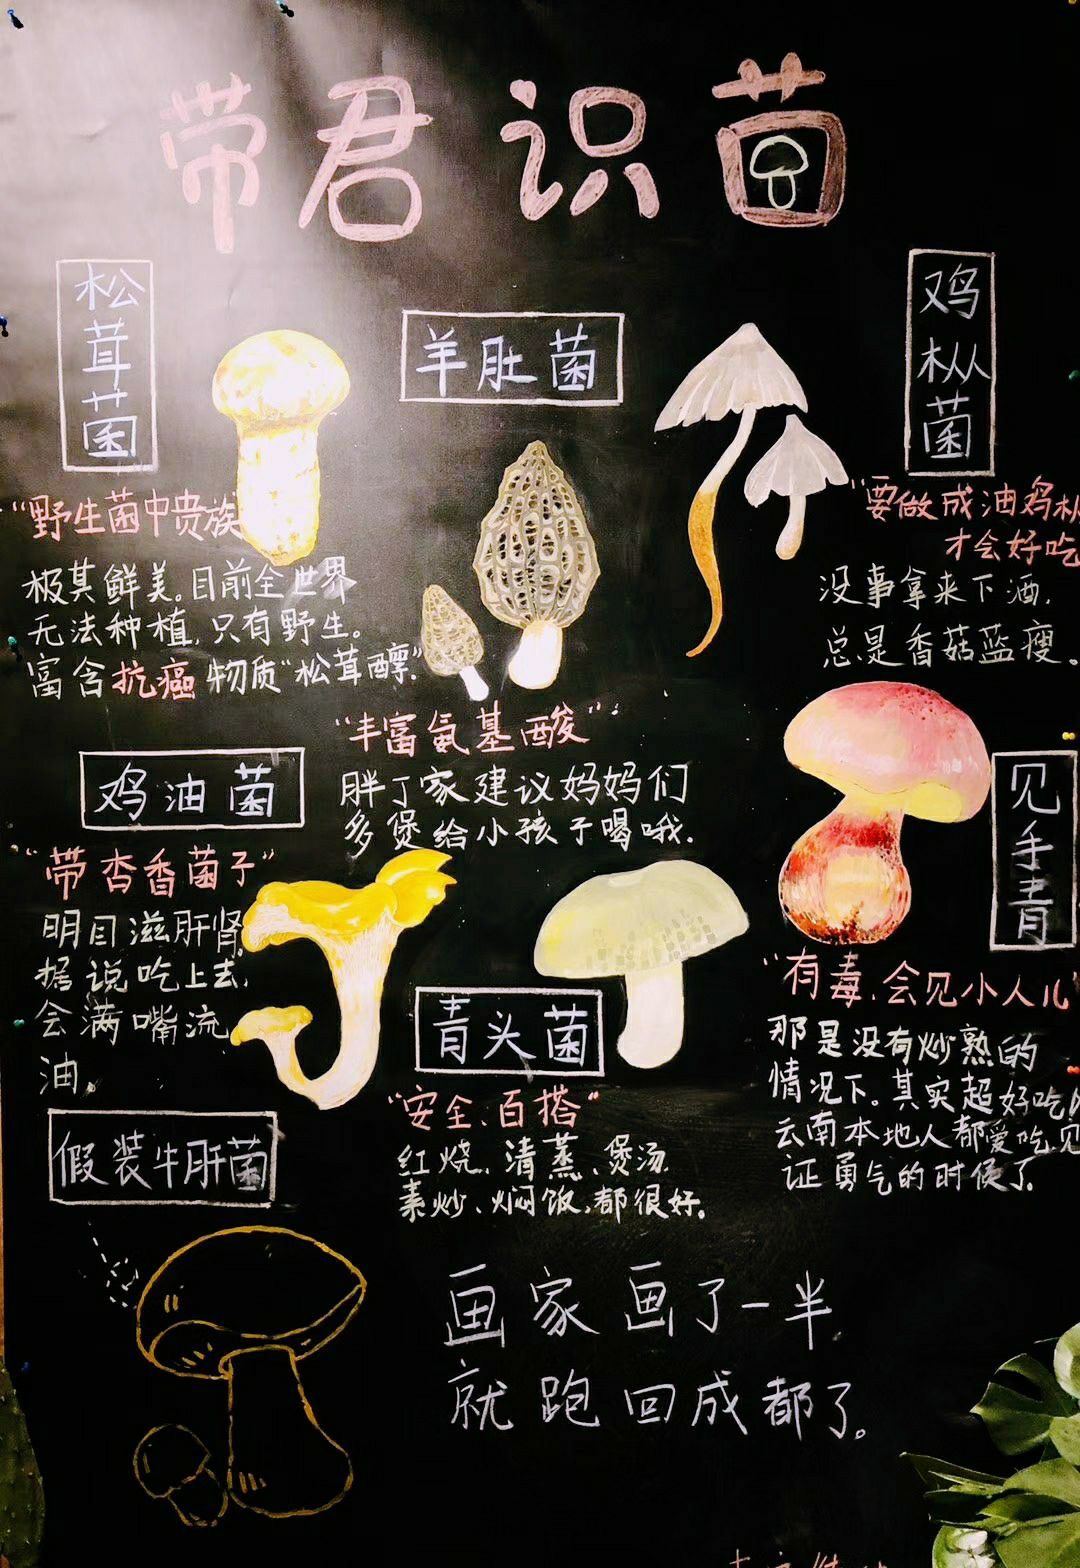 带君识菌
松茸菌
"野生菌中贵族
极其鲜美。目前全世界
无法种植,只有野生。
富含抗癌物质"松茸醇."
羊肚菌
"丰富氨基酸"
胖丁家建议妈妈们
多煲给小孩子喝哦.
鸡枞菌
"要做成油鸡枞
才会好吃
没事拿来下酒,
总是香菇蓝瘦。
鸡油菌
"带杏香菌子"
明目滋肝肾,
据说吃上去,
会满嘴流
油.
青头菌
"安全、百搭"
红烧、清蒸、煲汤
素炒、焖饭.都很好。
见手青
"有毒.会见小人儿"
那是没有炒熟的
情况下。其实超好吃
云南本地人都爱吃见
证勇气的时候了
假装牛肝菌
画家画了一半
就跑回成都了。